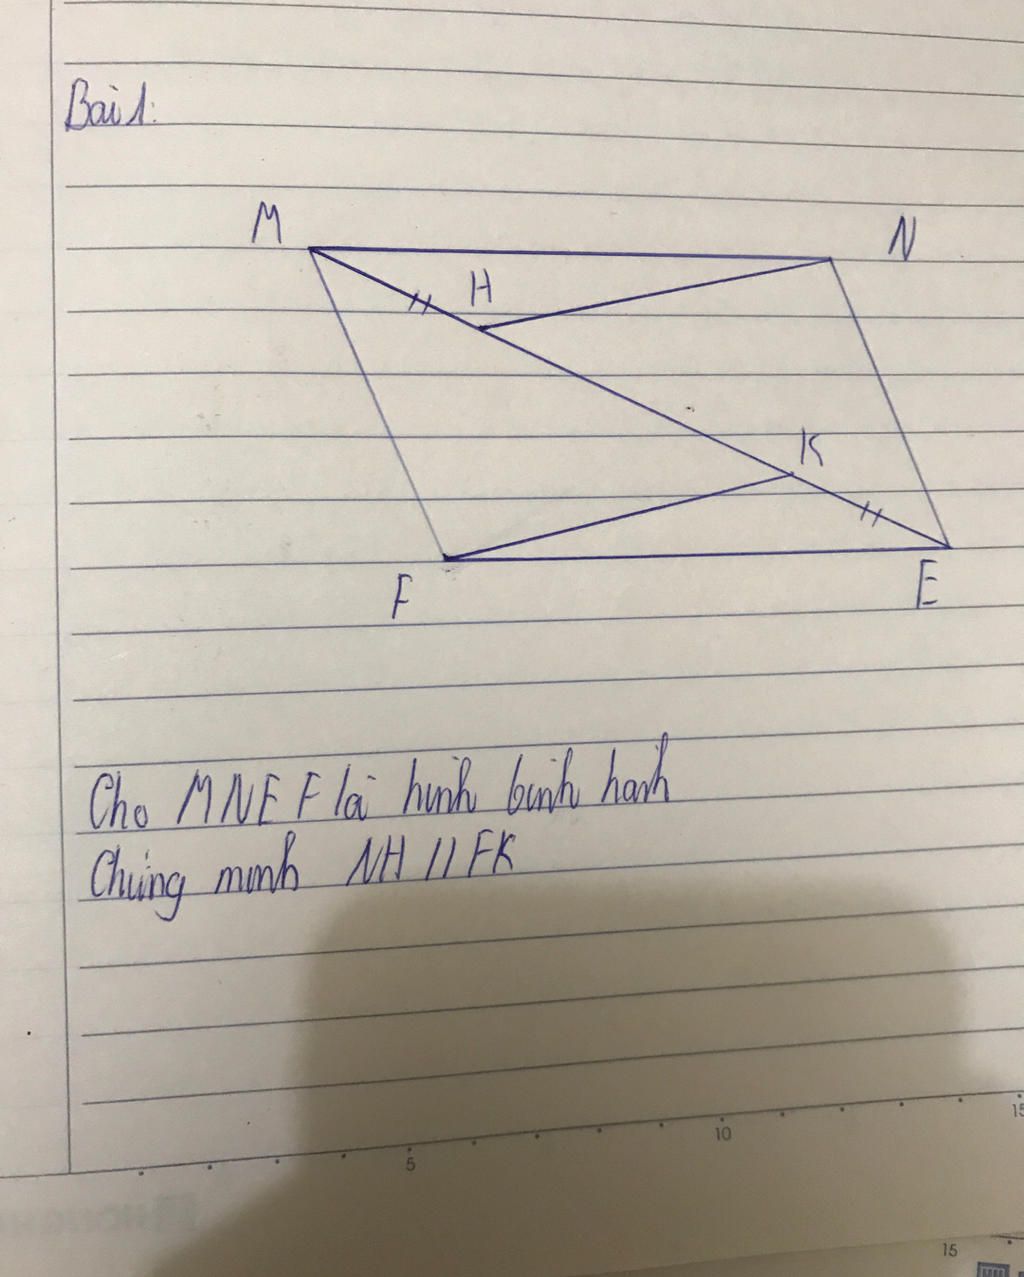 Bài 1:
M
N
H
K
F
E
Cho MNEF là hình bình hành
Chứng minh NH // FK
5
10
15
15